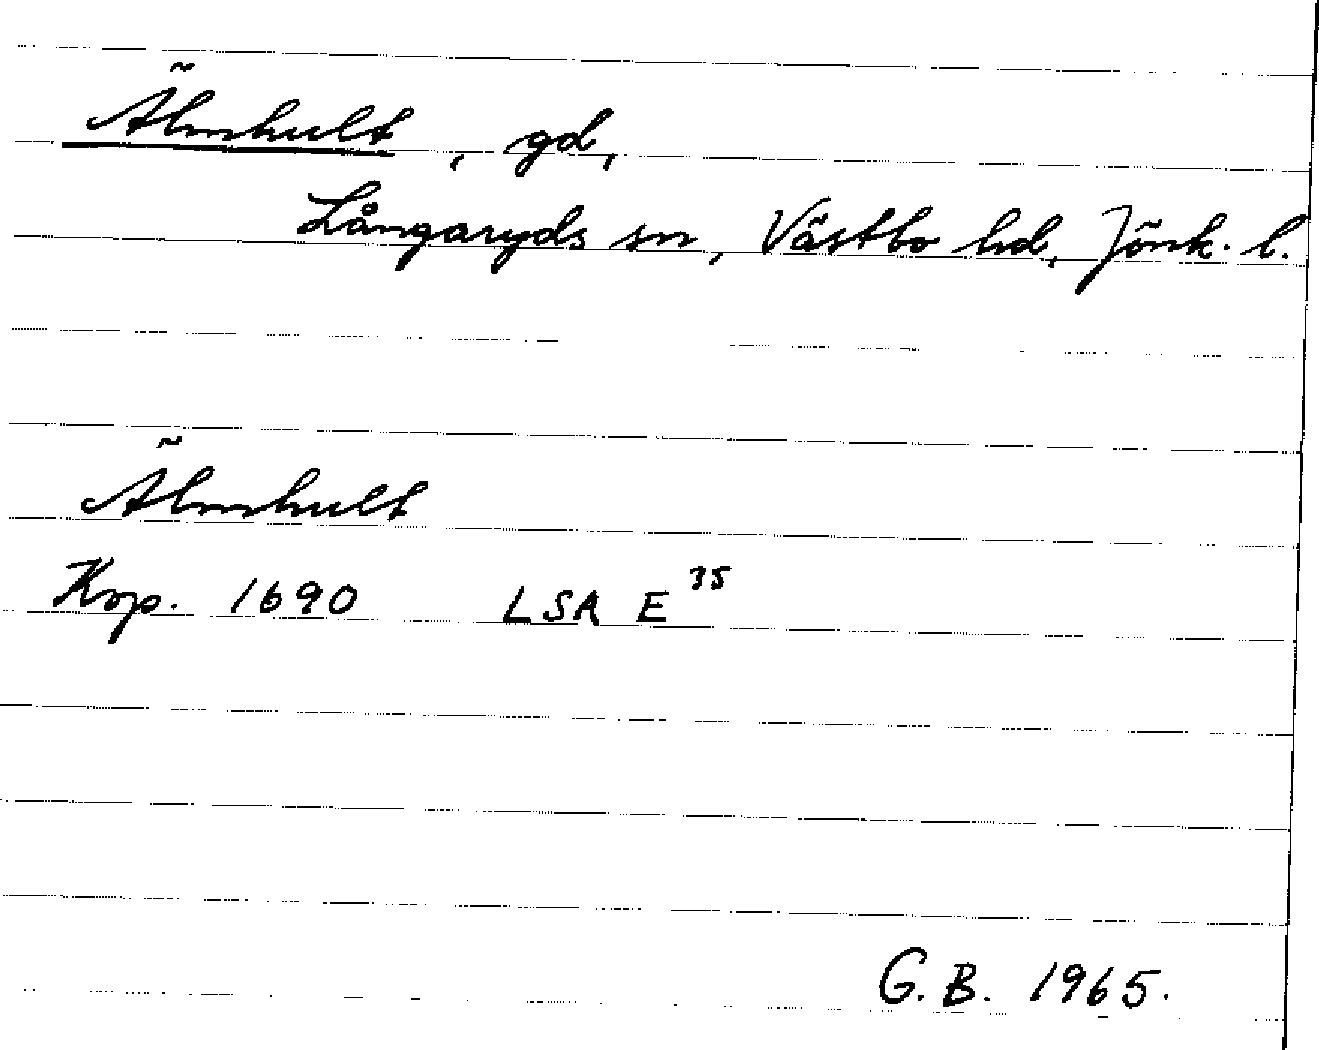 Älmhult, gd,
Långaryds sn, Västbo hd, Jönk. l.
Älmhult
Kop. 1690 LSA E 35
G.B. 1965.